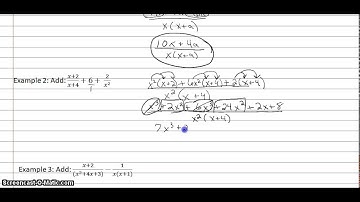 Add:
x(x+a)
10x+4a
x(x+a)
Example 2: Add: (x+2)/(x+4) + 6/1 + 2/x²
x²(x+2)+6x²(x+4)+2(x+4)
x²(x+4)
x³+2x²+6x³+24x²+2x+8
x²(x+4)
7x³+
Example 3: Add: (x+2)/(x²+4x+3) − 1/(x(x+1))
Screencast-O-Matic.com